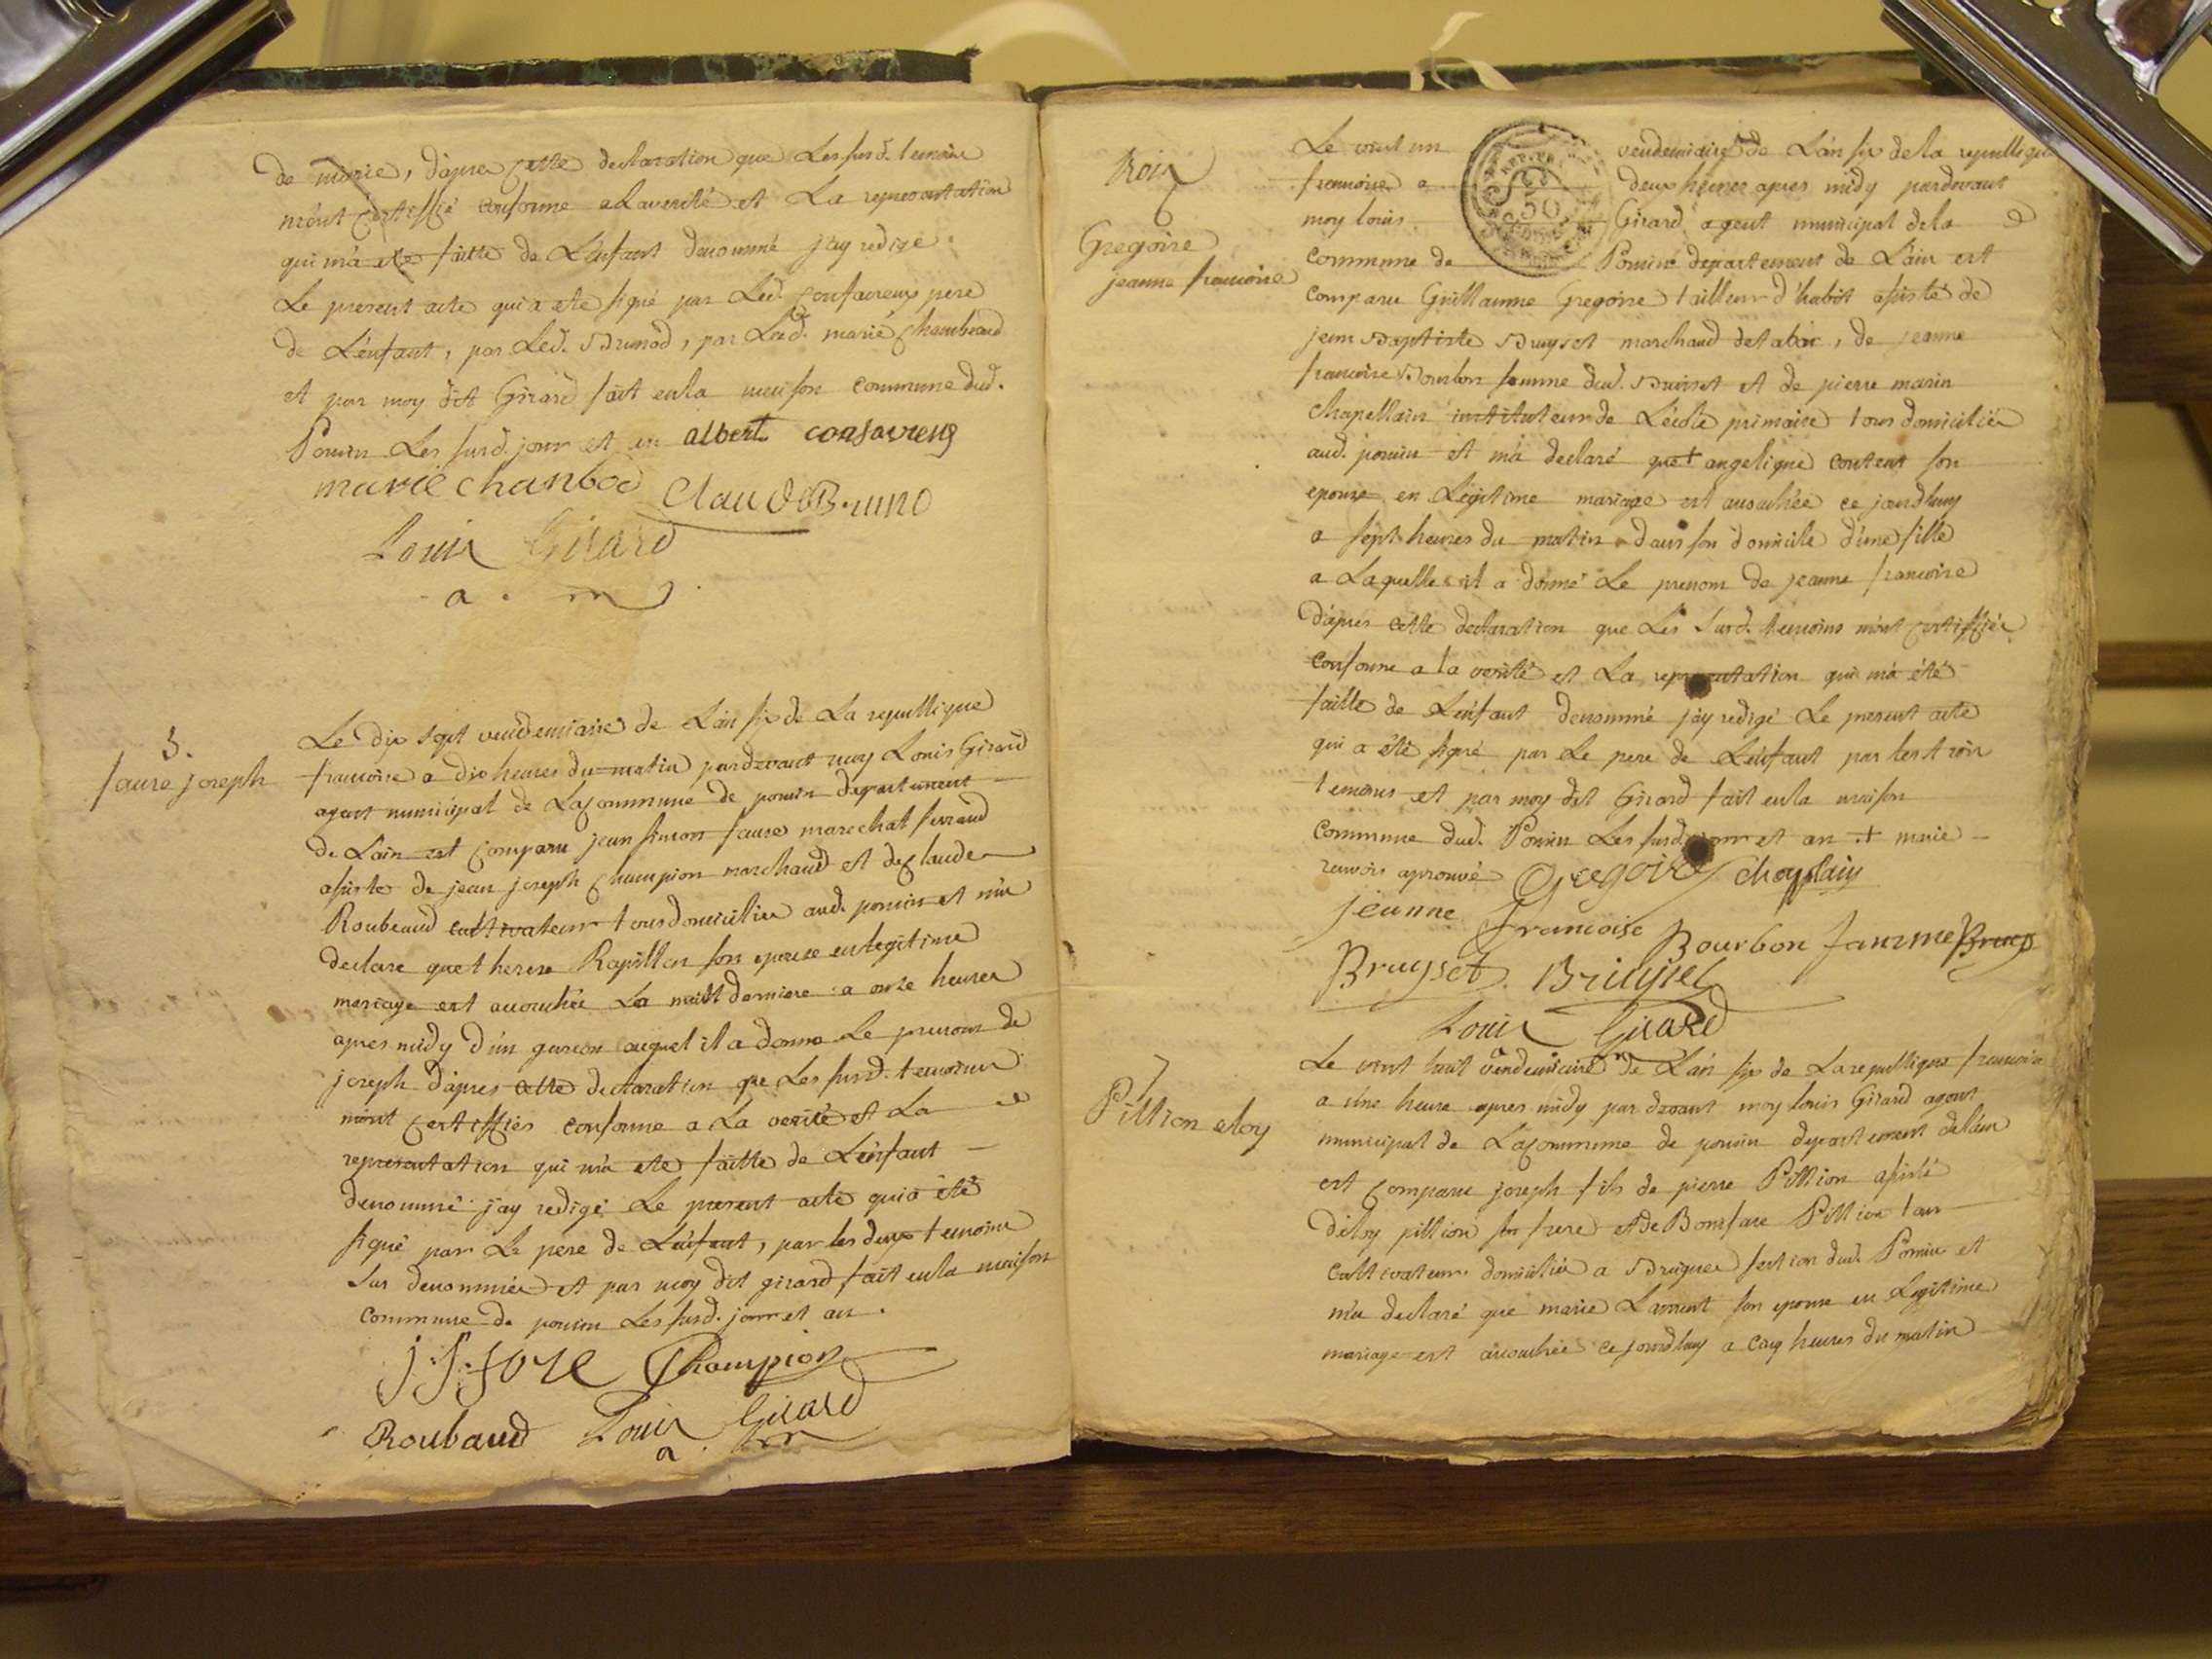 de marie, d'apres cette declaration que Les susd. temoins
m'ont certiffié conforme a La verité et La representation
qui m'a ete faitte de L'enfant denommé j'ay redigé
Le present acte qui a ete signé par Led. Confavreux pere
de L'enfant, par Led. Brunod, par Lad. marie Chambaud
et par moy dit Girard fait en la maison commune dud.
Poncin Les susd. jour et an albert confavreux
marie chanbod Claude Bruno
Louis Girard
a. m
5.
faure joseph
Le dix sept vendemiaire de L'an six de La republique
francoise a dix heures du matin pardevant moy Louis Girard
agent municipal de La commune de poncin departement
de L'ain est comparu jean simon faure marechal ferrand
assisté de jean joseph Champion marchand et de Claude
Roubeaud cultivateur tous domiciliés aud. poncin et m'a
declare que therese Rapillon son epouse en legitime
mariage est accouchée La nuit derniere a onze heures
apres midy d'un garcon auquel il a donné Le prenom de
joseph d'apres cette declaration que Les susd. temoins
m'ont certiffiés conforme a La verité et La
representation qui m'a ete faitte de L'enfant
denommé j'ay redigé Le present acte qui a été
signé par Le pere de L'enfant, par les deux temoins
sus denommées et par moy dit girard fait en la maison
commune de poncin Les susd. jour et an.
j. S. fore Champion
Roubaud Louis Girard
a. m
6
Gregoire
jeanne francoise
Le vint un vendemiaire de L'an six de la republique
francoise a deux heures apres midy pardevant
moy louis Girard agent municipal de la
commune de Poncin departement de L'ain est
comparu Guillaume Gregoire tailleur d'habit assisté de
jean Baptiste Bruyset marchand de tabac, de jeanne
francoise Bourbon femme dud. Bruiset et de pierre marin
Chapellain instituteur de L'école primaire tous domiciliés
aud. poncin et m'a declaré que + angelique content son
epouse en Légitime mariage est accouchée ce jourdhuy
a sept heures du matin dans son domicile d'une fille
a Laquelle il a donné Le prenom de jeanne francoise
D'apres cette declaration que Les susd. temoins m'ont certiffiés
conforme a la verité et La representation qui m'a été
faitte de L'enfant denommé j'ay redigé Le present acte
qui a été signé par Le pere de L'enfant par les trois
temoins et par moy dit Girard fait en la maison
commune dud. Poncin Les susd. jour et an + marie
renvois aprouvé Gregoire Chapplain
jeanne francoise Bourbon famme Bruys
Bruyset Bruyset
Louis Girard
a m
7
Pittion eloy
Le vint huit vendemiaire de L'an six de La republique francoise
a une heure apres midy par devant moy louis Girard agent
municipal de La commune de poncin departement de L'ain
est comparu joseph fils de pierre Pittion assisté
d'eloy pittion son frere et de Boniface Pittion tous
cultivateurs domiciliés a Bruignes section dud. Poncin et
m'a declaré que marie Laurent son epouse en Legitime
mariage est accouchée ce jourdhuy a cinq heures du matin